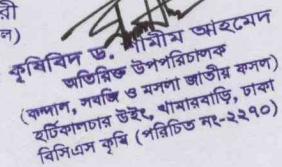 রী
ল)
কৃষিবিদ ড. শামীম আহমেদ
অতিরিক্ত উপপরিচালক
(কন্দাল, সবজি ও মসলা জাতীয় ফসল)
হর্টিকালচার উইং, খামারবাড়ি, ঢাকা
বিসিএস কৃষি (পরিচিতি নং-২২১০)